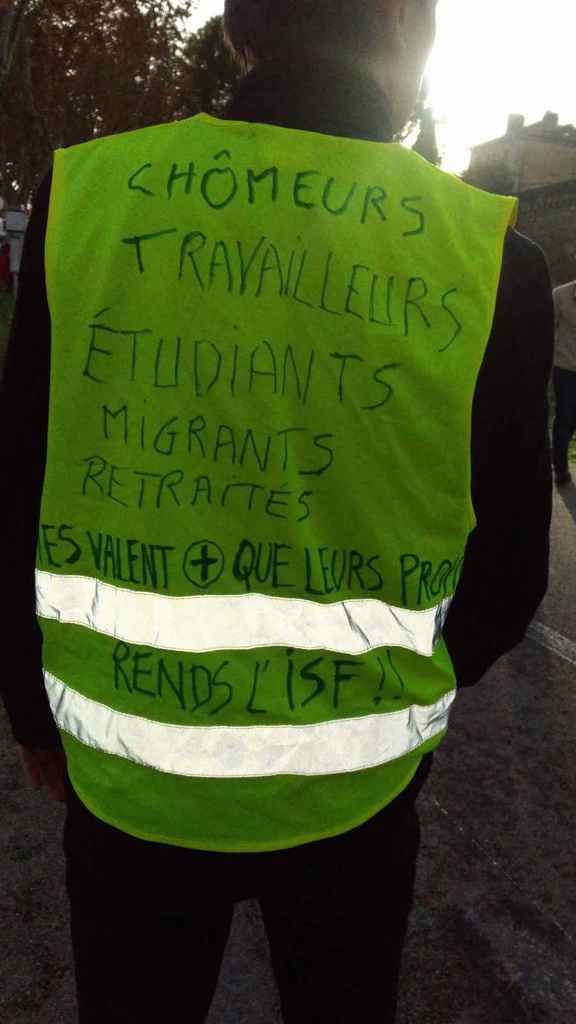 CHÔMEURS
TRAVAILLEURS
ÉTUDIANTS
MIGRANTS
RETRAITÉS
VALENT + QUE LEURS
RENDS L'ISF !!